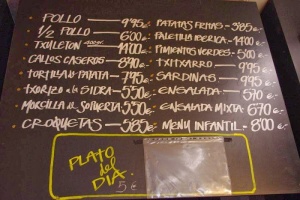 POLLO — 995€ PATATAS FRITAS — 385€
1/2 POLLO — 600€ PALETILLA IBERICA — 1400€
TXULETON — 1400€ PIMIENTOS VERDES — 500€
CALLOS CASEROS — 890€ TXITXARRO — 995€
TORTILLA de PATATA — 795€ SARDINAS — 995€
TXORIZO a la SIDRA — 550€ ENSALADA — 570€
MORCILLA de SOPUERTA — 550€ ENSALADA MIXTA — 670€
CROQUETAS — 585€ MENU INFANTIL — 800€
PLATO
del
DIA
5€